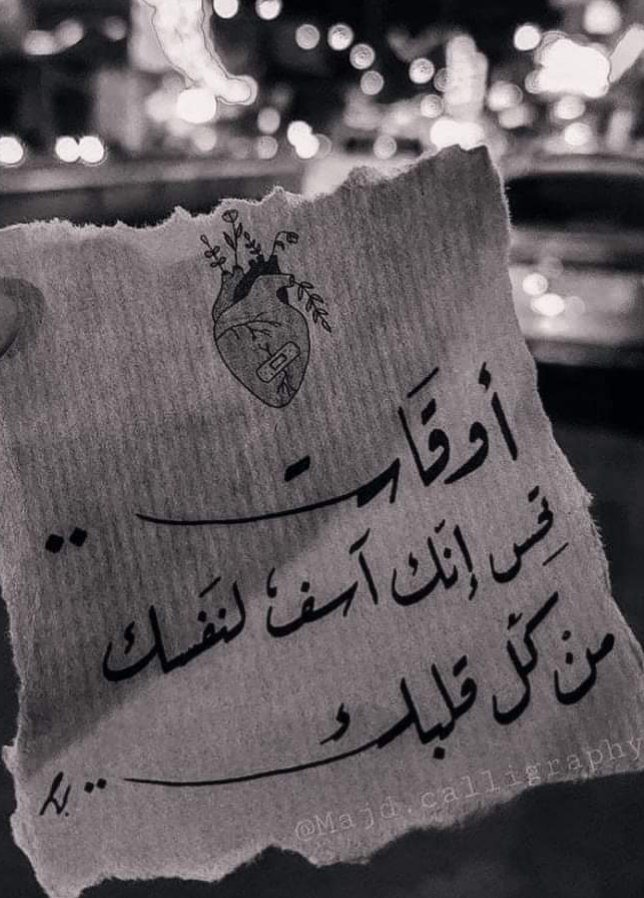 أوقات ..
تحس إنَك آسف لنفَسك
منْ كلّ قلبك ..
@Majd.calligraphy